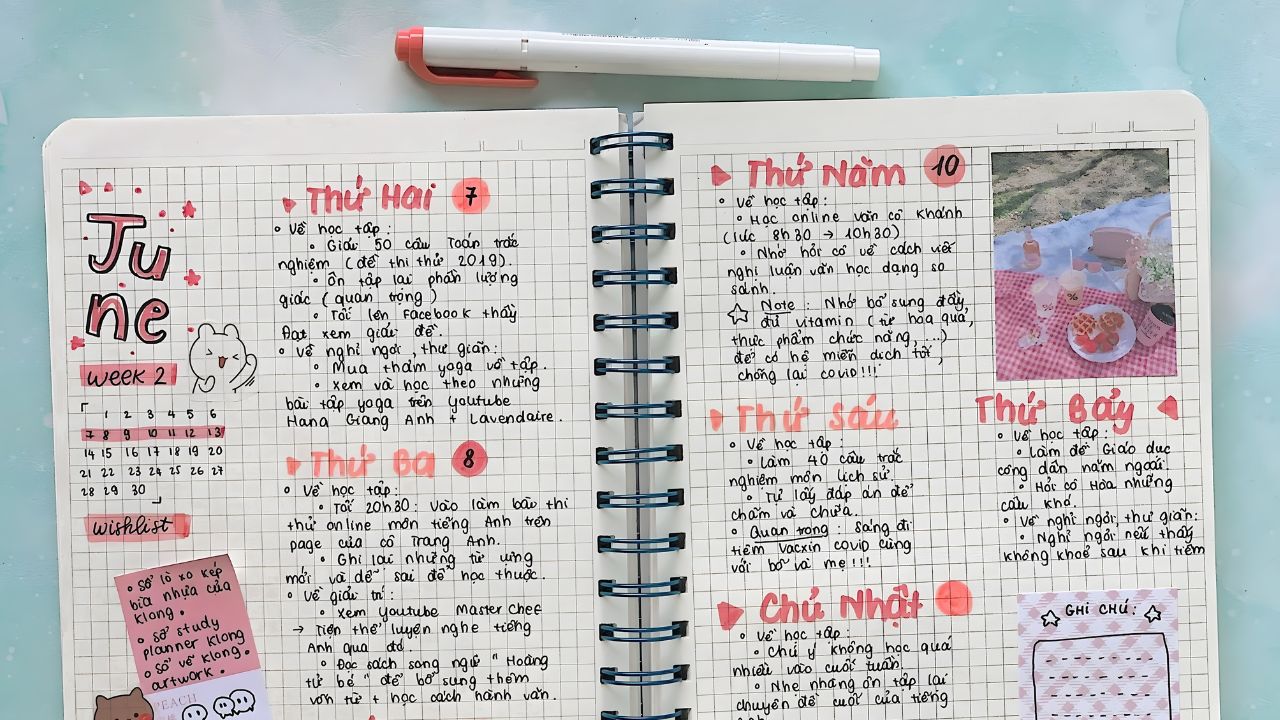 June
week 2
1 2 3 4 5 6
7 8 9 10 11 12 13
14 15 16 17 18 19 20
21 22 23 24 25 26 27
28 29 30
wishlist
• Sổ lò xo kép
bìa nhựa của
klong.
• Sổ study
planner klong
• Sổ vẽ klong.
artwork.
PEACH
Thứ Hai 7
• Về học tập:
• Giải 50 câu Toán trắc
nghiệm (đề thi thử 2019).
• Ôn tập lại phần lượng
giác (quan trọng)
• Tối lên Facebook thầy
Đạt xem giải đề.
• Về nghỉ ngơi, thư giãn:
• Mua thảm yoga về tập.
• Xem và học theo những
bài tập yoga trên Youtube
Hana Giang Anh + Lavendaire.
Thứ Ba 8
• Về học tập:
• Tối 20h30: Vào làm bài thi
thử online môn tiếng Anh trên
page của cô Trang Anh.
• Ghi lại những từ vựng
mới và dễ sai để học thuộc.
• Về giải trí:
• Xem Youtube Master Chef
→ Tiện thể luyện nghe tiếng
Anh qua đó.
• Đọc sách song ngữ "Hoàng
tử bé" để bổ sung thêm
vốn từ + học cách hành văn.
Thứ Năm 10
• Về học tập:
• Học online văn cô Khánh
(lúc 8h30 → 10h30)
• Nhớ hỏi cô về cách viết
nghị luận văn học dạng so
sánh.
☆ Note: Nhớ bổ sung đầy
đủ vitamin (từ hoa quả,
thực phẩm chức năng,...)
để có hệ miễn dịch tốt,
chống lại covid!!!
Thứ Sáu
• Về học tập:
• Làm 40 câu trắc
nghiệm môn lịch sử.
• Tự lấy đáp án để
chấm và chữa.
• Quan trọng: sáng đi
tiêm vacxin covid cùng
với bố và mẹ!!!
Chủ Nhật
• Về học tập:
• Chú ý không học quá
nhiều vào cuối tuần.
• Nhẹ nhàng ôn tập lại
chuyên đề cuối của tiếng
Thứ Bảy
• Về học tập:
• Làm đề Giáo dục
công dân năm ngoái.
• Hỏi cô Hóa những
câu khó.
• Về nghỉ ngơi, thư giãn:
• Nghỉ ngơi nếu thấy
không khoẻ sau khi tiêm
GHI CHÚ: